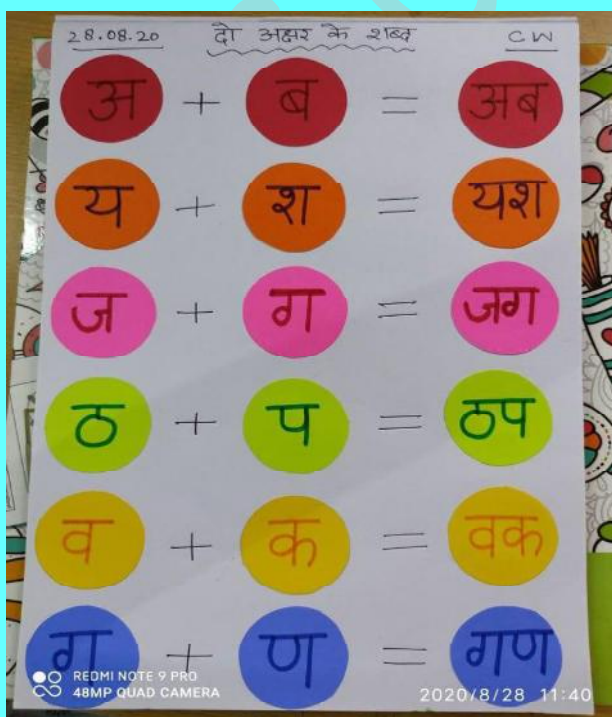 28.08.20 दो अक्षर के शब्द CW
अ + ब = अब
य + श = यश
ज + ग = जग
ठ + प = ठप
व + क = वक
ग + ण = गण
REDMI NOTE 9 PRO
48MP QUAD CAMERA 2020/8/28 11:40